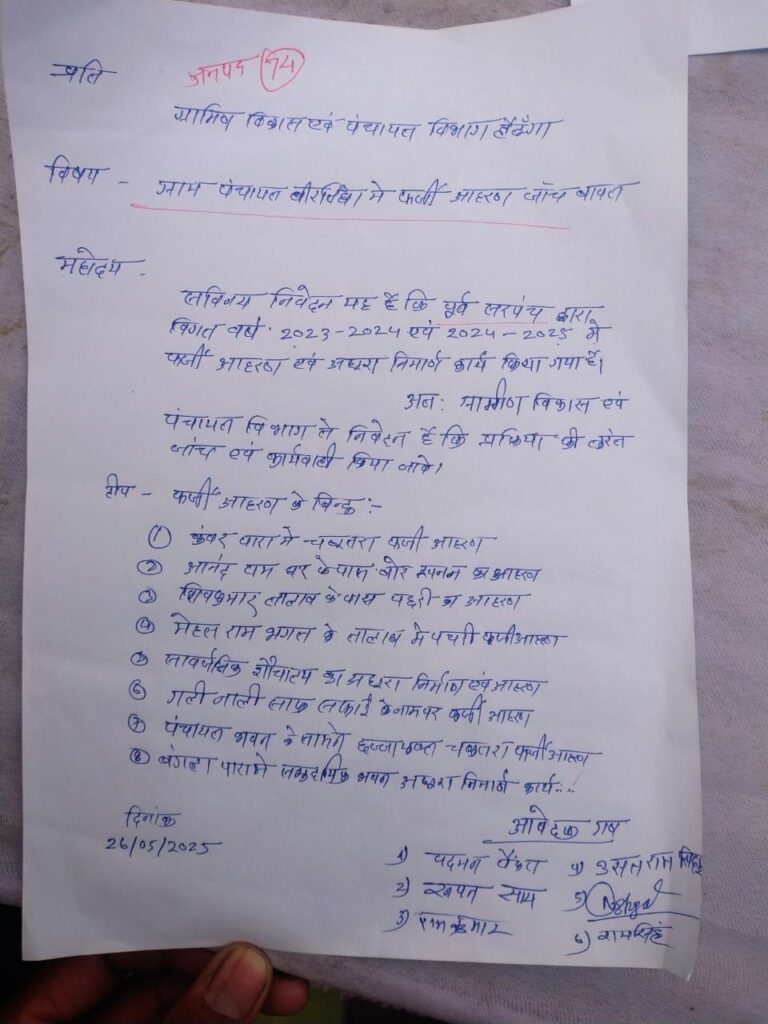 प्रति
जनपद 74
ग्रामिण विकास एवं पंचायत विभाग लैलूँगा
विषय - ग्राम पंचायत बीरसिंघा मे फर्जी आहरण जाँच बावत
महोदय -
सविनय निवेदन यह है कि पूर्व सरपंच द्वारा
विगत वर्ष 2023-2024 एवं 2024-2025 मे
फर्जी आहरण एवं अधुरा निर्माण कार्य किया गया है।
अत: ग्रामीण विकास एवं
पंचायत विभाग से निवेदन है कि प्रक्रिया की तुरंत
जांच एवं कार्यवाही किया जावे।
टीप - फर्जी आहरण के बिन्दु :-
① कंवर पारा मे चबुतरा फर्जी आहरण
② आनंद राम घर के पास बोर खनन का आहरण
③ शिवकुमार तालाब के पास पचरी का आहरण
④ मेहत्तर राम भगत के तालाब मे पचरी फर्जी आहरण
⑤ सार्वजनिक शौचालय का अधुरा निर्माण एवं आहरण
⑥ गली नाली साफ सफाई के नाम पर फर्जी आहरण
⑦ पंचायत भवन के सामने छज्जायुक्त चबुतरा फर्जी आहरण
⑧ बंगला पारा मे सामुदायिक भवन अधुरा निर्माण कार्य
दिनांक
26/05/2025
आवेदक गण
1) पदमन
2) साय
3) रामकुमार
4) राम सिदार
5)
6) रामसिंह